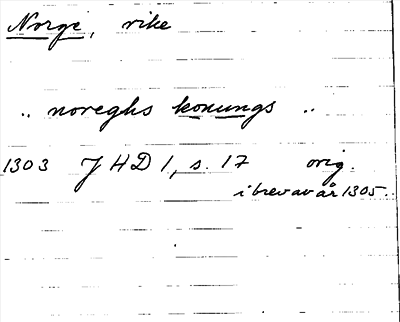 Norge, rike
.. noreghs konungs ..
1303 JHD 1, s. 17 orig.
i brev av år 1305.